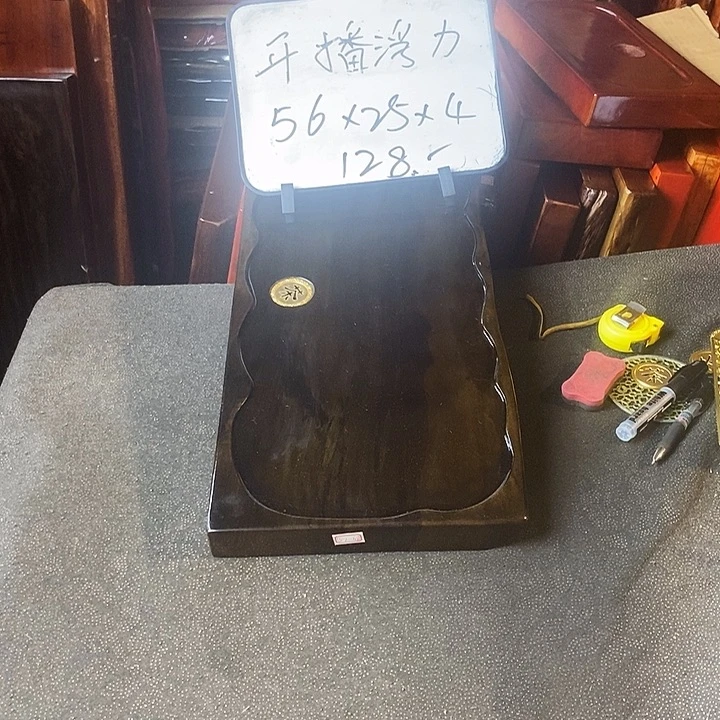 开播活力
56×25×4
128.-
茶
茶